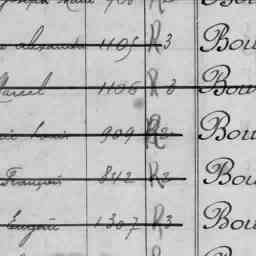 Alexandre 1105 R3 Bou
Marcel 1106 R3 Bou
Louis 909 R2 Bou
François 842 R2 Bou
Eugène 1307 R3 Bou